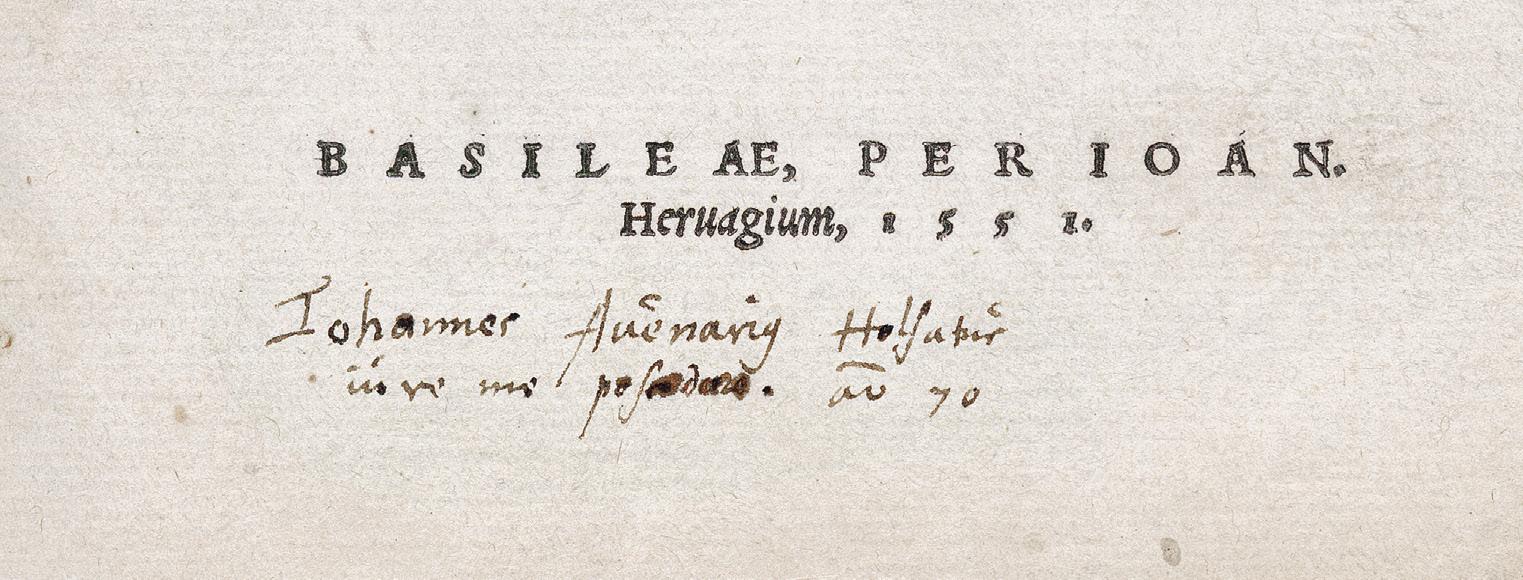 BASILEAE, PER IOÁN.
Heruagium, 1551.
Iohannes Auenarius Holsatus
iure me . aō 70